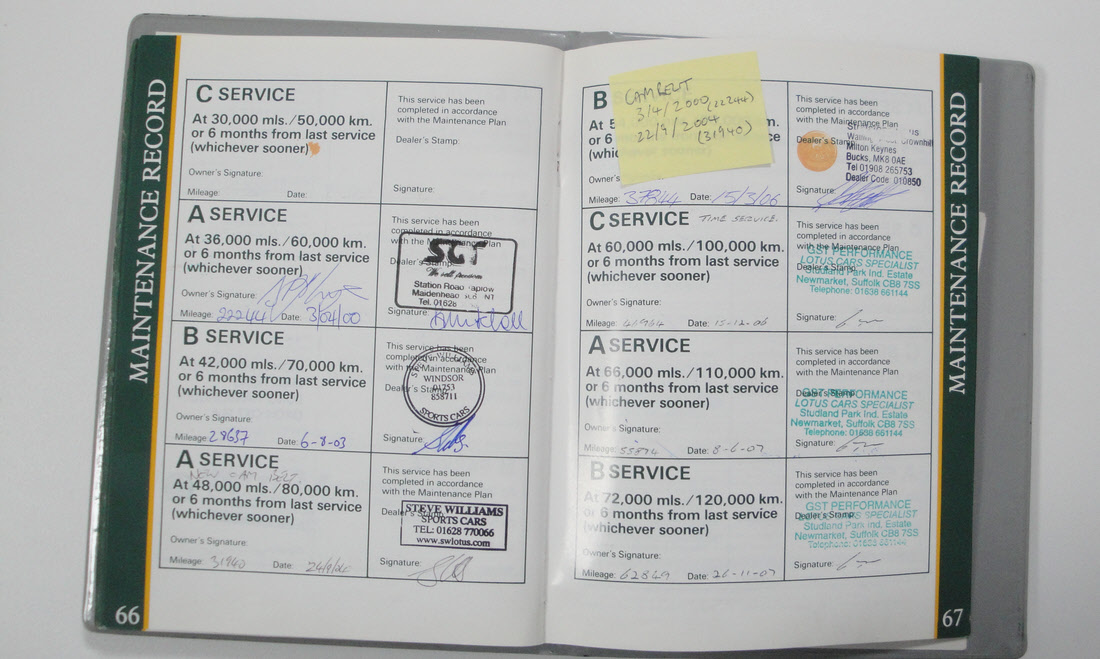 MAINTENANCE RECORD
C SERVICE
At 30,000 mls./50,000 km.
or 6 months from last service
(whichever sooner)
Owner's Signature:
Mileage: Date:
This service has been
completed in accordance
with the Maintenance Plan
Dealer's Stamp:
Signature:
A SERVICE
At 36,000 mls./60,000 km.
or 6 months from last service
(whichever sooner)
Owner's Signature:
Mileage: 22244 Date: 3/04/00
This service has been
completed in accordance
with the Maintenance Plan
Dealer's Stamp:
SGT
Station Road Taplow
Maidenhead NT
Tel. 01628
Signature:
B SERVICE
At 42,000 mls./70,000 km.
or 6 months from last service
(whichever sooner)
Owner's Signature:
Mileage: 28657 Date: 6-8-03
This service has been
completed in accordance
with the Maintenance Plan
Dealer's Stamp:
STEVE WILLIAMS
WINDSOR
01753
858711
SPORTS CARS
Signature:
A SERVICE
NEW CAM BELT.
At 48,000 mls./80,000 km.
or 6 months from last service
(whichever sooner)
Owner's Signature:
Mileage: 31940 Date: 24/9/04
This service has been
completed in accordance
with the Maintenance Plan
Dealer's Stamp:
STEVE WILLIAMS
SPORTS CARS
TEL: 01628 770066
www.swlotus.com
Signature:
66
B
CAMBELT
3/4/2000 (22244)
22/9/2004
(31940)
At 5
or 6
(whic
Owner's
Mileage: 37844 Date: 15/3/06
This service has been
completed in accordance
with the Maintenance Plan
Dealer's Stamp:
Milton Keynes
Bucks, MK8 0AE
Tel 01908 265753
Dealer Code 010850
Signature:
C SERVICE TIME SERVICE.
At 60,000 mls./100,000 km.
or 6 months from last service
(whichever sooner)
Owner's Signature:
Mileage: 41964 Date: 15-12-06
This service has been
completed in accordance
with the Maintenance Plan
Dealer's Stamp:
GST PERFORMANCE
LOTUS CARS SPECIALIST
Studland Park Ind. Estate
Newmarket, Suffolk CB8 7SS
Telephone: 01638 661144
Signature:
A SERVICE
At 66,000 mls./110,000 km.
or 6 months from last service
(whichever sooner)
Owner's Signature:
Mileage: 55874 Date: 8-6-07
This service has been
completed in accordance
with the Maintenance Plan
Dealer's Stamp:
GST PERFORMANCE
LOTUS CARS SPECIALIST
Studland Park Ind. Estate
Newmarket, Suffolk CB8 7SS
Telephone: 01638 661144
Signature:
B SERVICE
At 72,000 mls./120,000 km.
or 6 months from last service
(whichever sooner)
Owner's Signature:
Mileage: 62849 Date: 26-11-07
This service has been
completed in accordance
with the Maintenance Plan
Dealer's Stamp:
GST PERFORMANCE
LOTUS CARS SPECIALIST
Studland Park Ind. Estate
Newmarket, Suffolk CB8 7SS
Telephone: 01638 661144
Signature:
MAINTENANCE RECORD
67